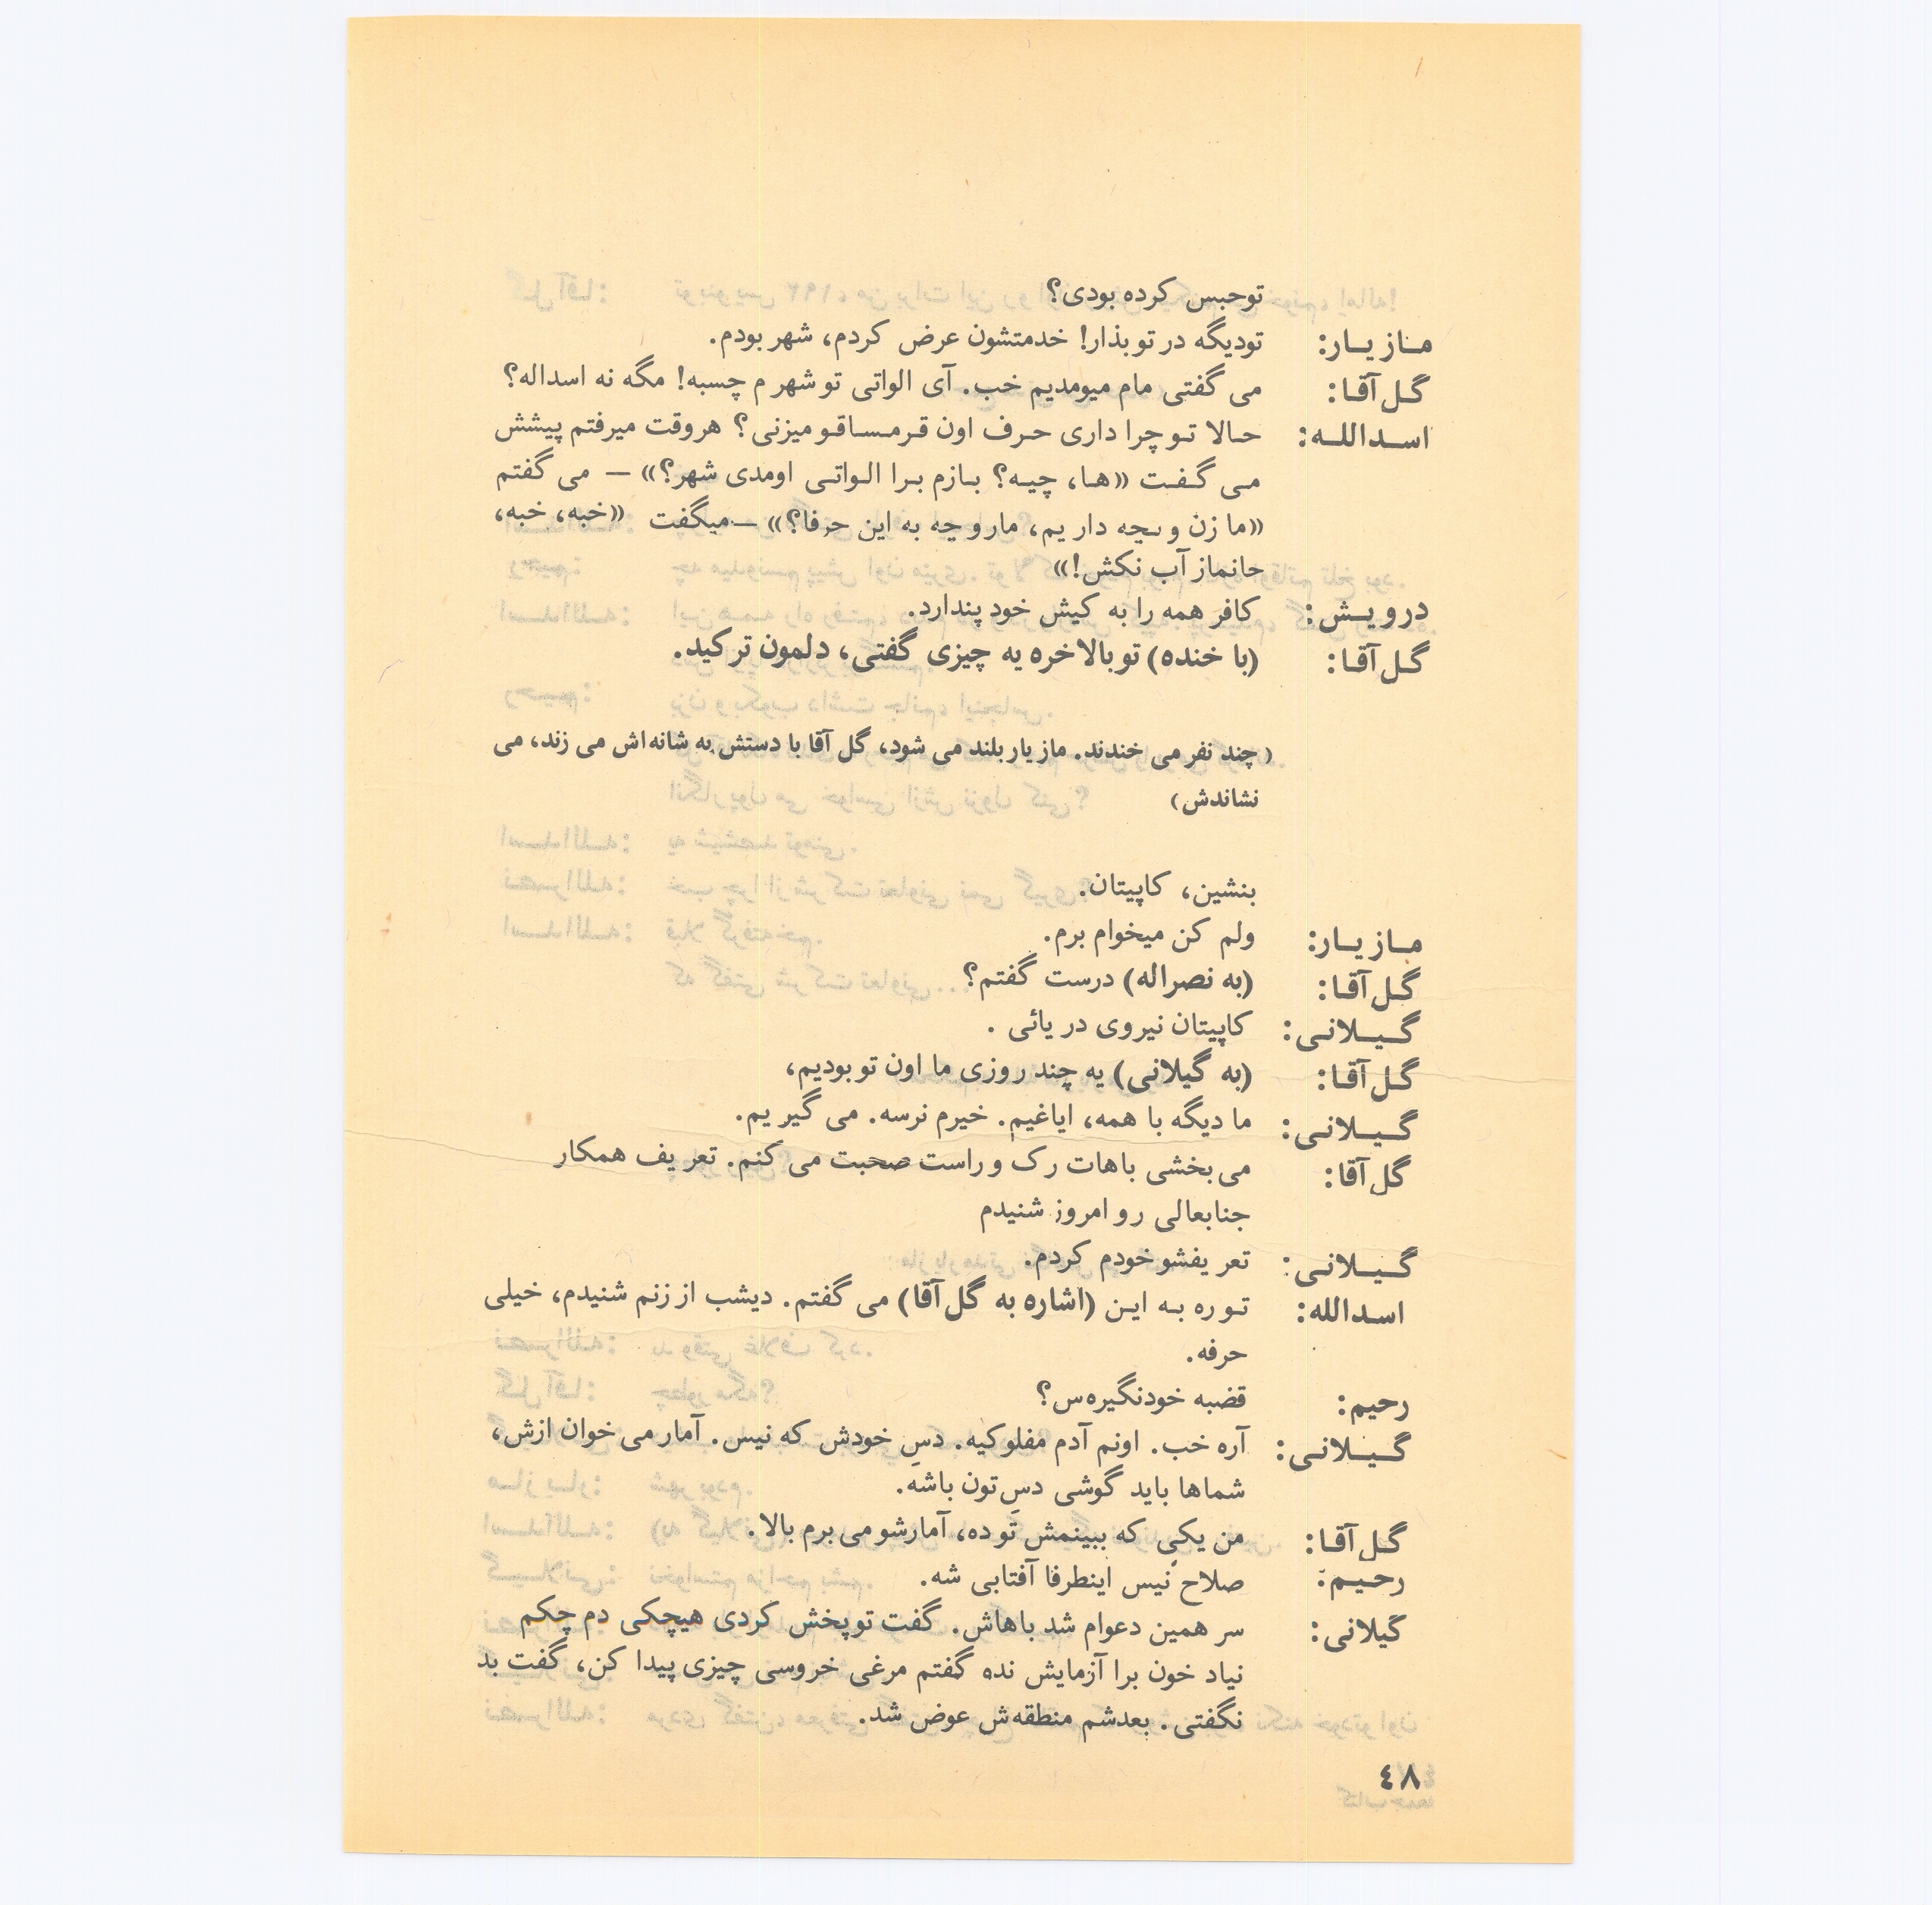 توحبس کرده بودی؟
مازیار: تودیگه در توبذار! خدمتشون عرض کردم، شهر بودم.
گل‌آقا: می گفتی مام میومدیم خب. آی الواتی تو شهر م چسبه! مگه نه اسداله؟
اسدالله: حالا تو چرا داری حرف اون قرمساقو میزنی؟ هروقت میرفتم پیشش
می گفت «ها، چیه؟ بازم برا الواتی اومدی شهر؟» — می گفتم
«ما زن و بچه داریم، مارو چه به این حرفا؟» — میگفت «خبه، خبه،
جانماز آب نکش!»
درویش: کافر همه را به کیش خود پندارد.
گل‌آقا: (با خنده) توبالاخره یه چیزی گفتی، دلمون ترکید.
(چند نفر می خندند. مازیار بلند می شود، گل آقا با دستش به شانه‌اش می زند، می
نشاندش)
بنشین، کاپیتان.
مازیار: ولم کن میخوام برم.
گل‌آقا: (به نصراله) درست گفتم؟
گیلانی: کاپیتان نیروی دریائی .
گل‌آقا: (به گیلانی) یه چند روزی ما اون تو بودیم،
گیلانی: ما دیگه با همه، ایاغیم. خیرم نرسه. می گیریم.
گل‌آقا: می‌بخشی باهات رک و راست صحبت می کنم. تعریف همکار
جنابعالی رو امروز شنیدم
گیلانی: تعریفشو خودم کردم.
اسدالله: توره به این (اشاره به گل‌آقا) می گفتم. دیشب از زنم شنیدم، خیلی
حرفه.
رحیم: قضبه خودنگیره‌س؟
گیلانی: آره خب. اونم آدم مفلوکیه. دسِ خودش که نیس. آمار می‌خوان ازش،
شماها باید گوشی دسِ‌تون باشه.
گل‌آقا: من یکی که ببینمش توده، آمارشو می‌برم بالا.
رحیم: صلاح نیس اینطرفا آفتابی شه.
گیلانی: سر همین دعوام شد باهاش. گفت توپخش کردی هیچکی دم چکم
نیاد خون برا آزمایش نده گفتم مرغی خروسی چیزی پیدا کن، گفت بد
نگفتی. بعدشم منطقه‌ش عوض شد.
٤٨